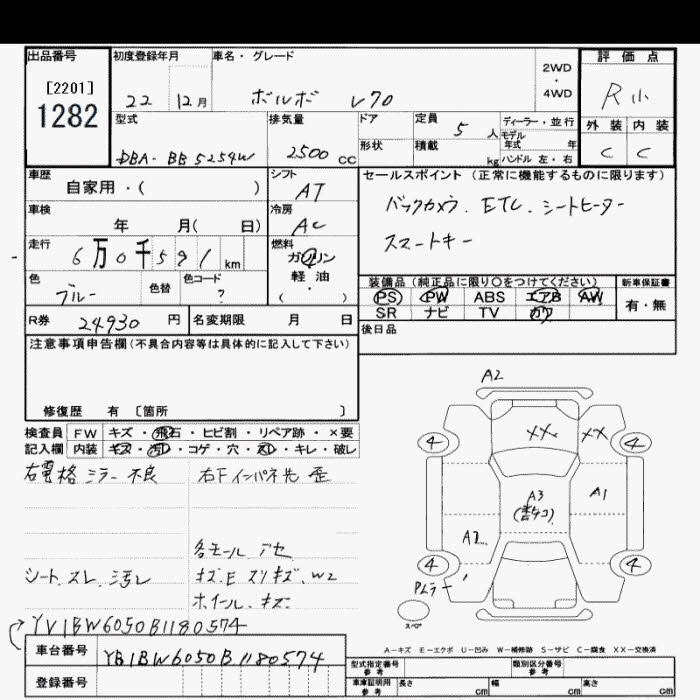 出品番号
[2201]
1282
初度登録年月
22 12月
車名・グレード
ボルボ V70
2WD
・
4WD
評価点
R小
外装 内装
C C
型式
DBA-BB5254W
排気量
2500 CC
ドア
形状
定員
5 人
積載
kg
ディーラー・並行
モデル年式 年
ハンドル 左・右
車歴
自家用・( )
シフト
AT
車検
年 月( 日)
冷房
AC
走行
6万0千591km
燃料
ガソリン
軽・油
( )
色
ブルー
色替
色コード
?
R券
24930 円
名変期限 月 日
セールスポイント(正常に機能するものに限ります)
バックカメラ. ETC. シートヒーター
スマートキー
装備品(純正品に限り○をつけてください)
PS PW ABS エアB AW
SR ナビ TV カワ
新車保証書
有・無
後日品
注意事項申告欄(不具合内容等は具体的に記入して下さい)
修復歴 有 〔箇所 〕
検査員 FW キズ・飛石・ヒビ割・リペア跡・×要
記入欄 内装 キズ・汚レ・コゲ・穴・スレ・キレ・破レ
右電格ミラー不良
右Fインパネ先歪
各モール アセ
シート.スレ.汚レ
キズ.E スリキズ.W2
ホイール.キズ
YV1BW6050B1180574
車台番号 YB1BW6050B1180574
登録番号
A2
XX XX
4 4
A3
A1
A2
4 4
スペア
A-キズ E-エクボ U-凹み W-補修跡 S-サビ C-腐食 XX-交換済
型式指定番号
参考
類別区分番号
参考
車庫証明用
参考
長さ cm 幅 cm 高さ cm